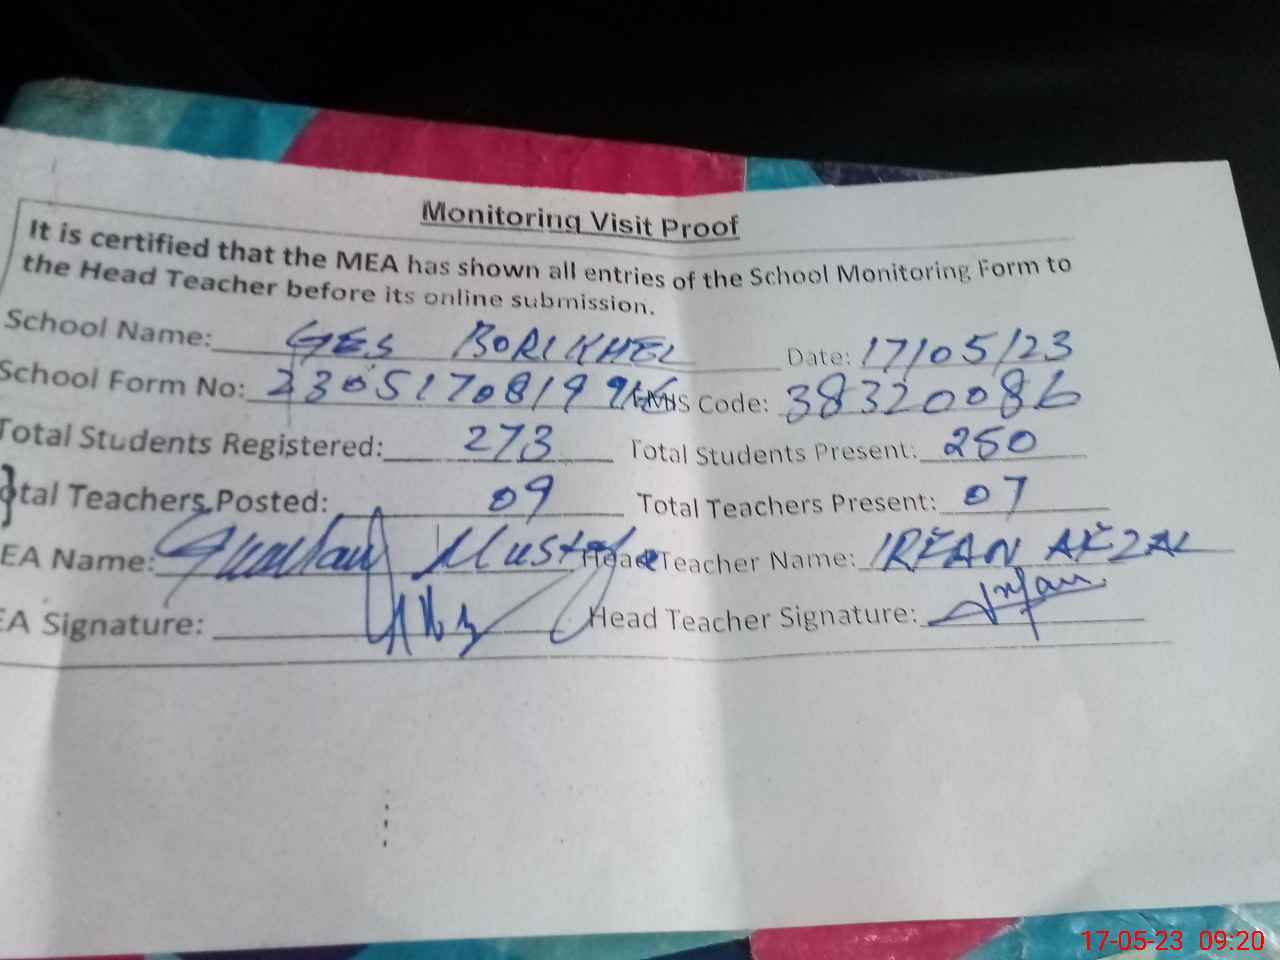 Monitoring Visit Proof
It is certified that the MEA has shown all entries of the School Monitoring Form to
the Head Teacher before its online submission.
School Name: GES BORIKHEL Date: 17/05/23
School Form No: 2305170819 Code: 38320086
Total Students Registered: 273 Total Students Present: 250
otal Teachers Posted: 09 Total Teachers Present: 07
EA Name: Mustafa Head Teacher Name: IRFAN AFZAL
EA Signature: Head Teacher Signature: Irfan
17-05-23 09:20